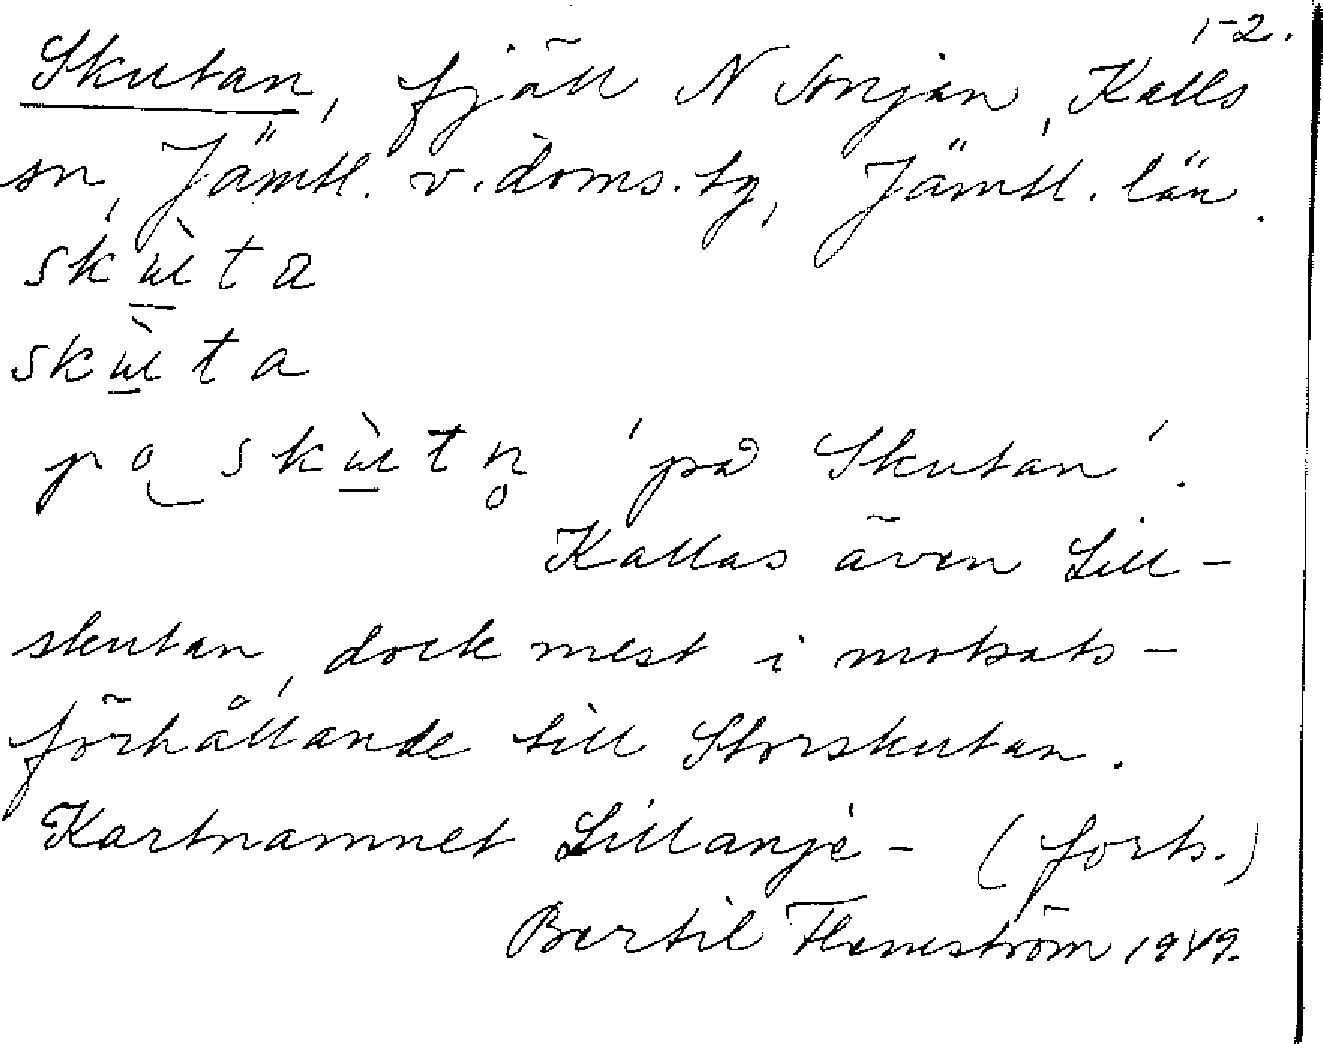 1-2.
Skutan, fjäll N Anjan, Kalls
sn, Jämtl. v. doms. tg, Jämtl. län.
skùta
skùta
pǫ skùtn̥ 'på Skutan'.
Kallas även Lill-
skutan, dock mest i motsats-
förhållande till Storskutan.
Kartnamnet Lillanje- (forts.)
Bertil Flemström 1949.